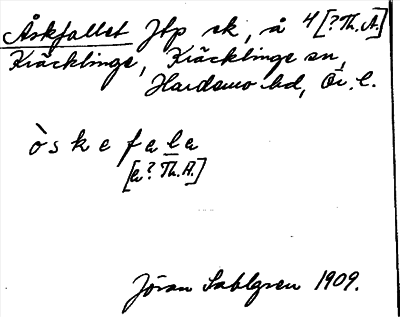 Åskfallet Jtp sk, å 4 [? Th. A.]
Kräcklinge, Kräcklinge sn,
Hardemo hd, Ör. l.
òskefala
[a? Th. A.]
Jöran Sahlgren 1909.